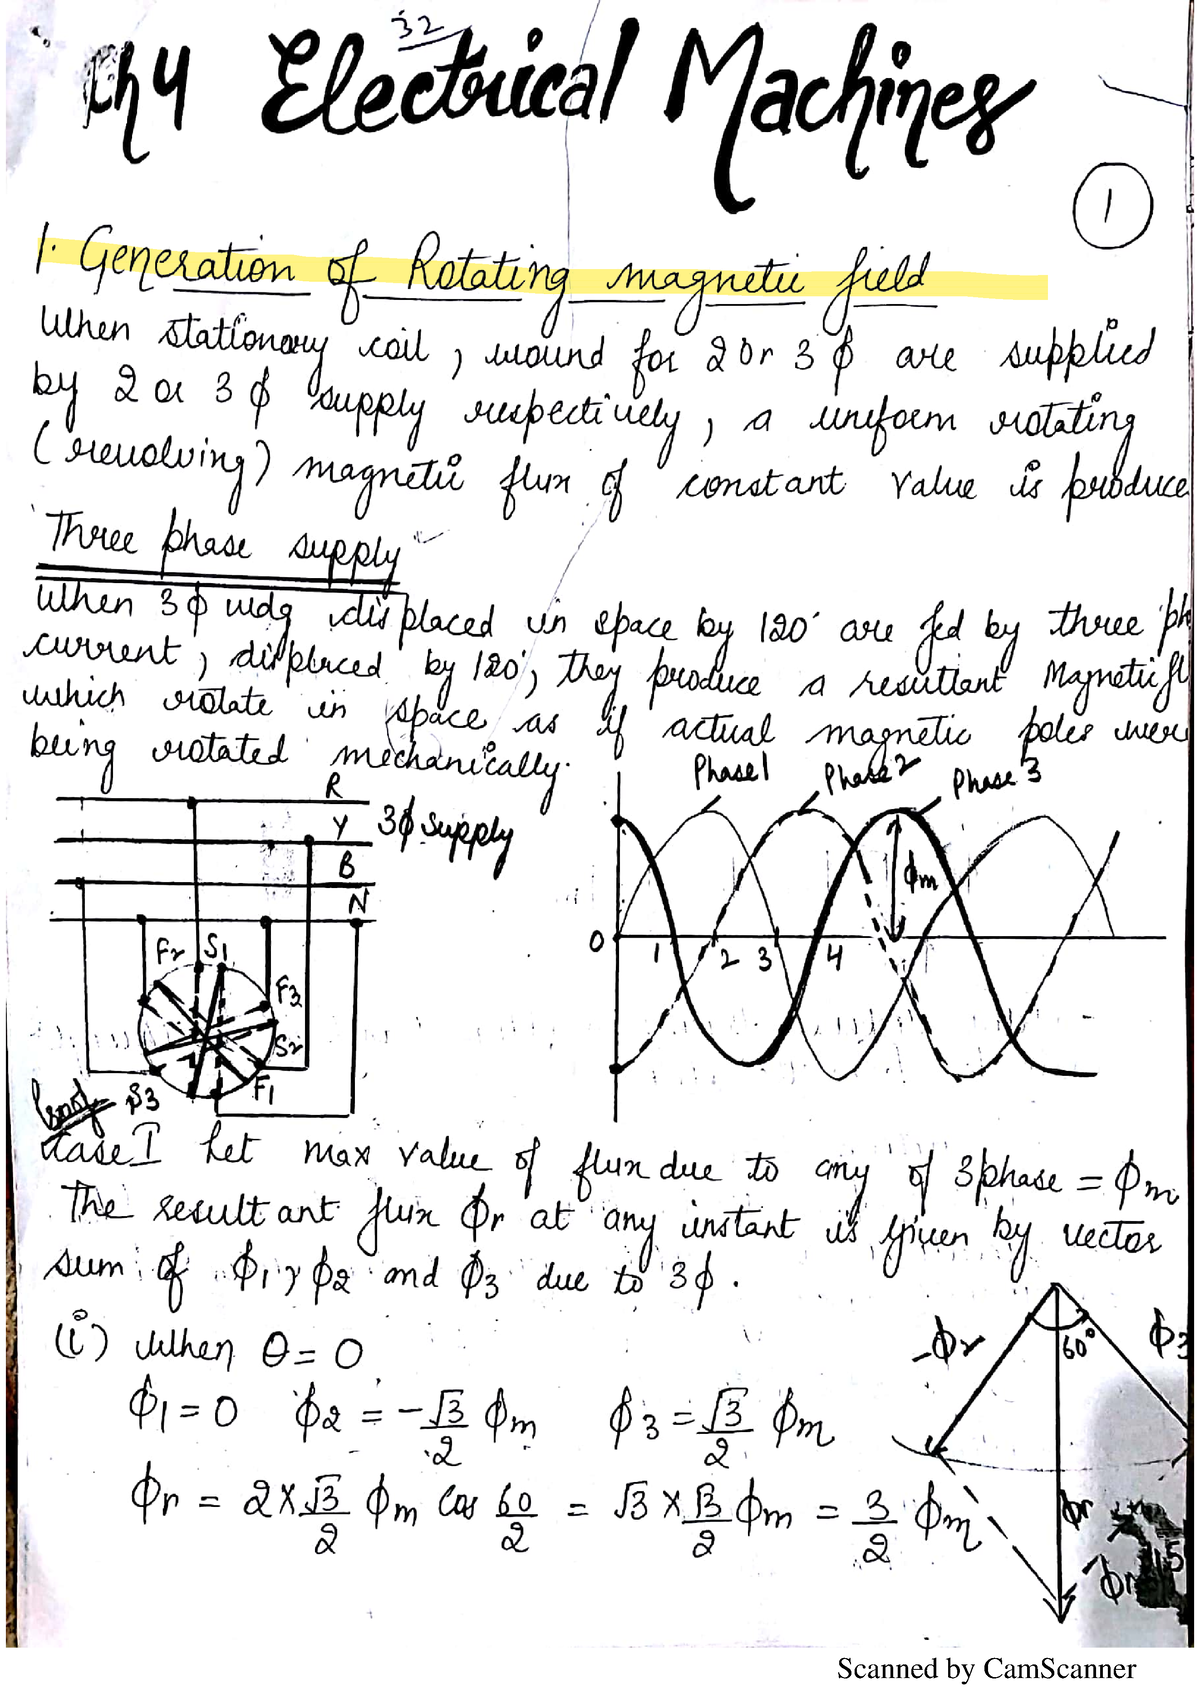 32
Ch 4 Electrical Machines
1
1. Generation of Rotating magnetic field
When stationary coil, wound for 2 or 3 ϕ are supplied
by 2 or 3 ϕ supply respectively, a uniform rotating
(revolving) magnetic flux of constant value is produce
Three phase supply
When 3ϕ wdg displaced in space by 120° are fed by three ph
current, displaced by 120°, they produce a resultant Magnetic fl
which rotate in space as if actual magnetic poles were
being rotated mechanically.
R
Y
B
N
3ϕ Supply
F2 S1
F3
S2
F1
S3
Phase 1 Phase 2 Phase 3
ϕm
0 1 2 3 4
Proof
Case I Let max value of flux due to any of 3 phase = ϕm
The resultant flux ϕr at any instant is given by vector
sum of ϕ1, ϕ2 and ϕ3 due to 3ϕ.
(i) When θ = 0
ϕ1 = 0 ϕ2 = -√3/2 ϕm ϕ3 = √3/2 ϕm
ϕr = 2 × √3/2 ϕm Cos 60/2 = √3 × √3/2 ϕm = 3/2 ϕm
-ϕ2 60° ϕ3
ϕr
Scanned by CamScanner